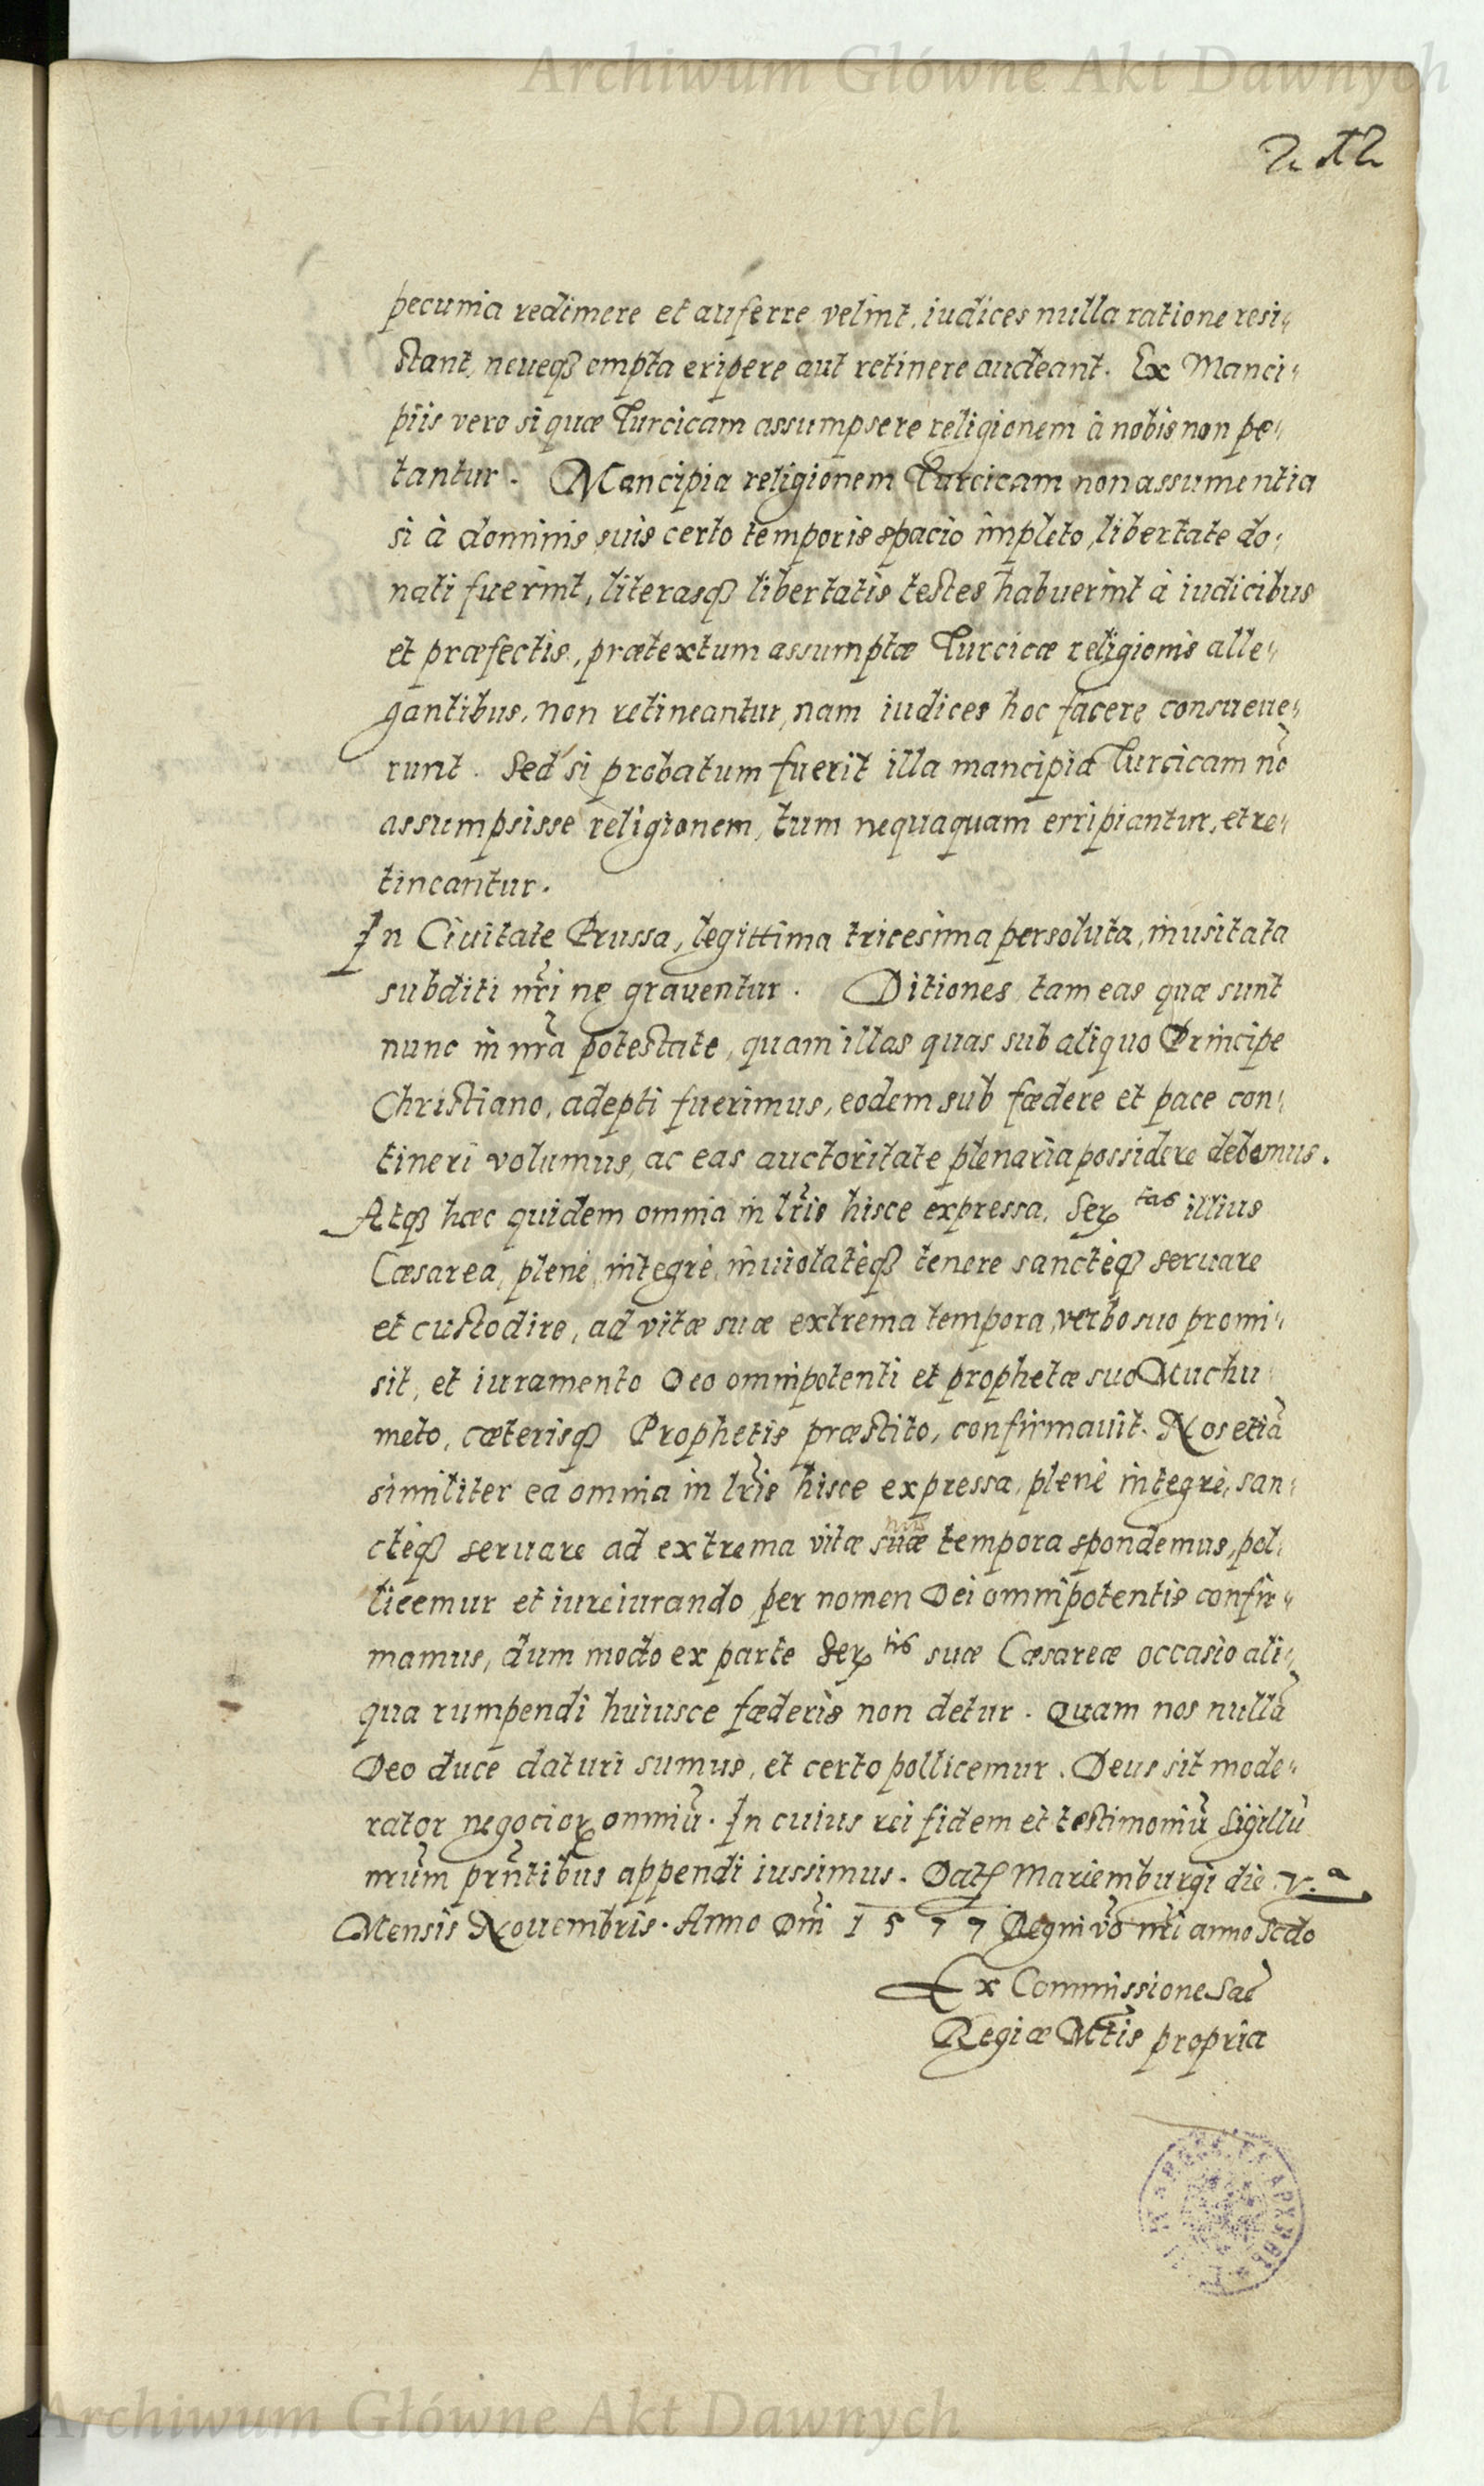 Archiwum Główne Akt Dawnych
212
pecunia redimere et auferre velint, iudices nulla ratione resi„
stant, neueqȝ empta eripere aut retinere audeant. Ex Manci„
piis vero si quæ Turcicam assumpsere religionem à nobis non pe„
tantur. Mancipia religionem Turcicam non assumentia
si à dominis suis certo temporis spacio impleto, libertate do„
nati fuerint, literasqȝ libertatis testes habuerint à iudicibus
et præfectis, prætextum assumptæ Turcicæ religionis alle„
gantibus, non retineantur, nam iudices hoc facere consueue„
runt. Sed si probatum fuerit illa mancipia Turcicam nõ
assumpsisse religionem, tum nequaquam erripiantur, et re„
tineantur.
In Ciuitate Prussa, legittima tricesima persoluta, inusitata
subditi nr̃i ne grauentur. Ditiones tam eas quæ sunt
nunc in nr̃a potestate, quam illas quas sub aliquo Principe
Christiano, adepti fuerimus, eodem sub fædere et pace con„
tineri volumus, ac eas auctoritate plenaria possidere debemus.
Atqȝ hæc quidem omnia in lr̃is hisce expressa, Serꝫ tas illius
Cæsarea, plenè, integrè, inuiolatèqȝ tenere sanctèqȝ seruare
et custodire, ad vitæ suæ extrema tempora, verbo suo promi„
sit, et iuramento Deo omnipotenti et prophetæ suo Muchu„
meto, cæterisqȝ Prophetis præstito, confirmauit. Nos etiã
similiter ea omnia in lr̃is hisce expressa, plenè integrè, san„
ctèqȝ seruare ad extrema vitæ suæ tempora spondemus, pol„
licemur et iureiurando per nomen Dei omnipotentis confir„
mamus, dum modo ex parte Serꝫ tis suæ Cæsareæ occasio ali„
qua rumpendi huiusce fæderis non detur. Quam nos nullã
Deo duce daturi sumus, et certo pollicemur. Deus sit mode„
rator negocioꝝ omniũ. In cuius rei fidem et testimoniũ sigillũ
nr̃um pr̃ntibus appendi iussimus. Datꝭ Mariemburgi die V.ª
Mensis Nouembris. Anno Dñi 1577 Regni võ nr̃i anno Scdo
Ex Commissione Sac̃
Regiæ Mt̃is propria
Archiwum Główne Akt Dawnych